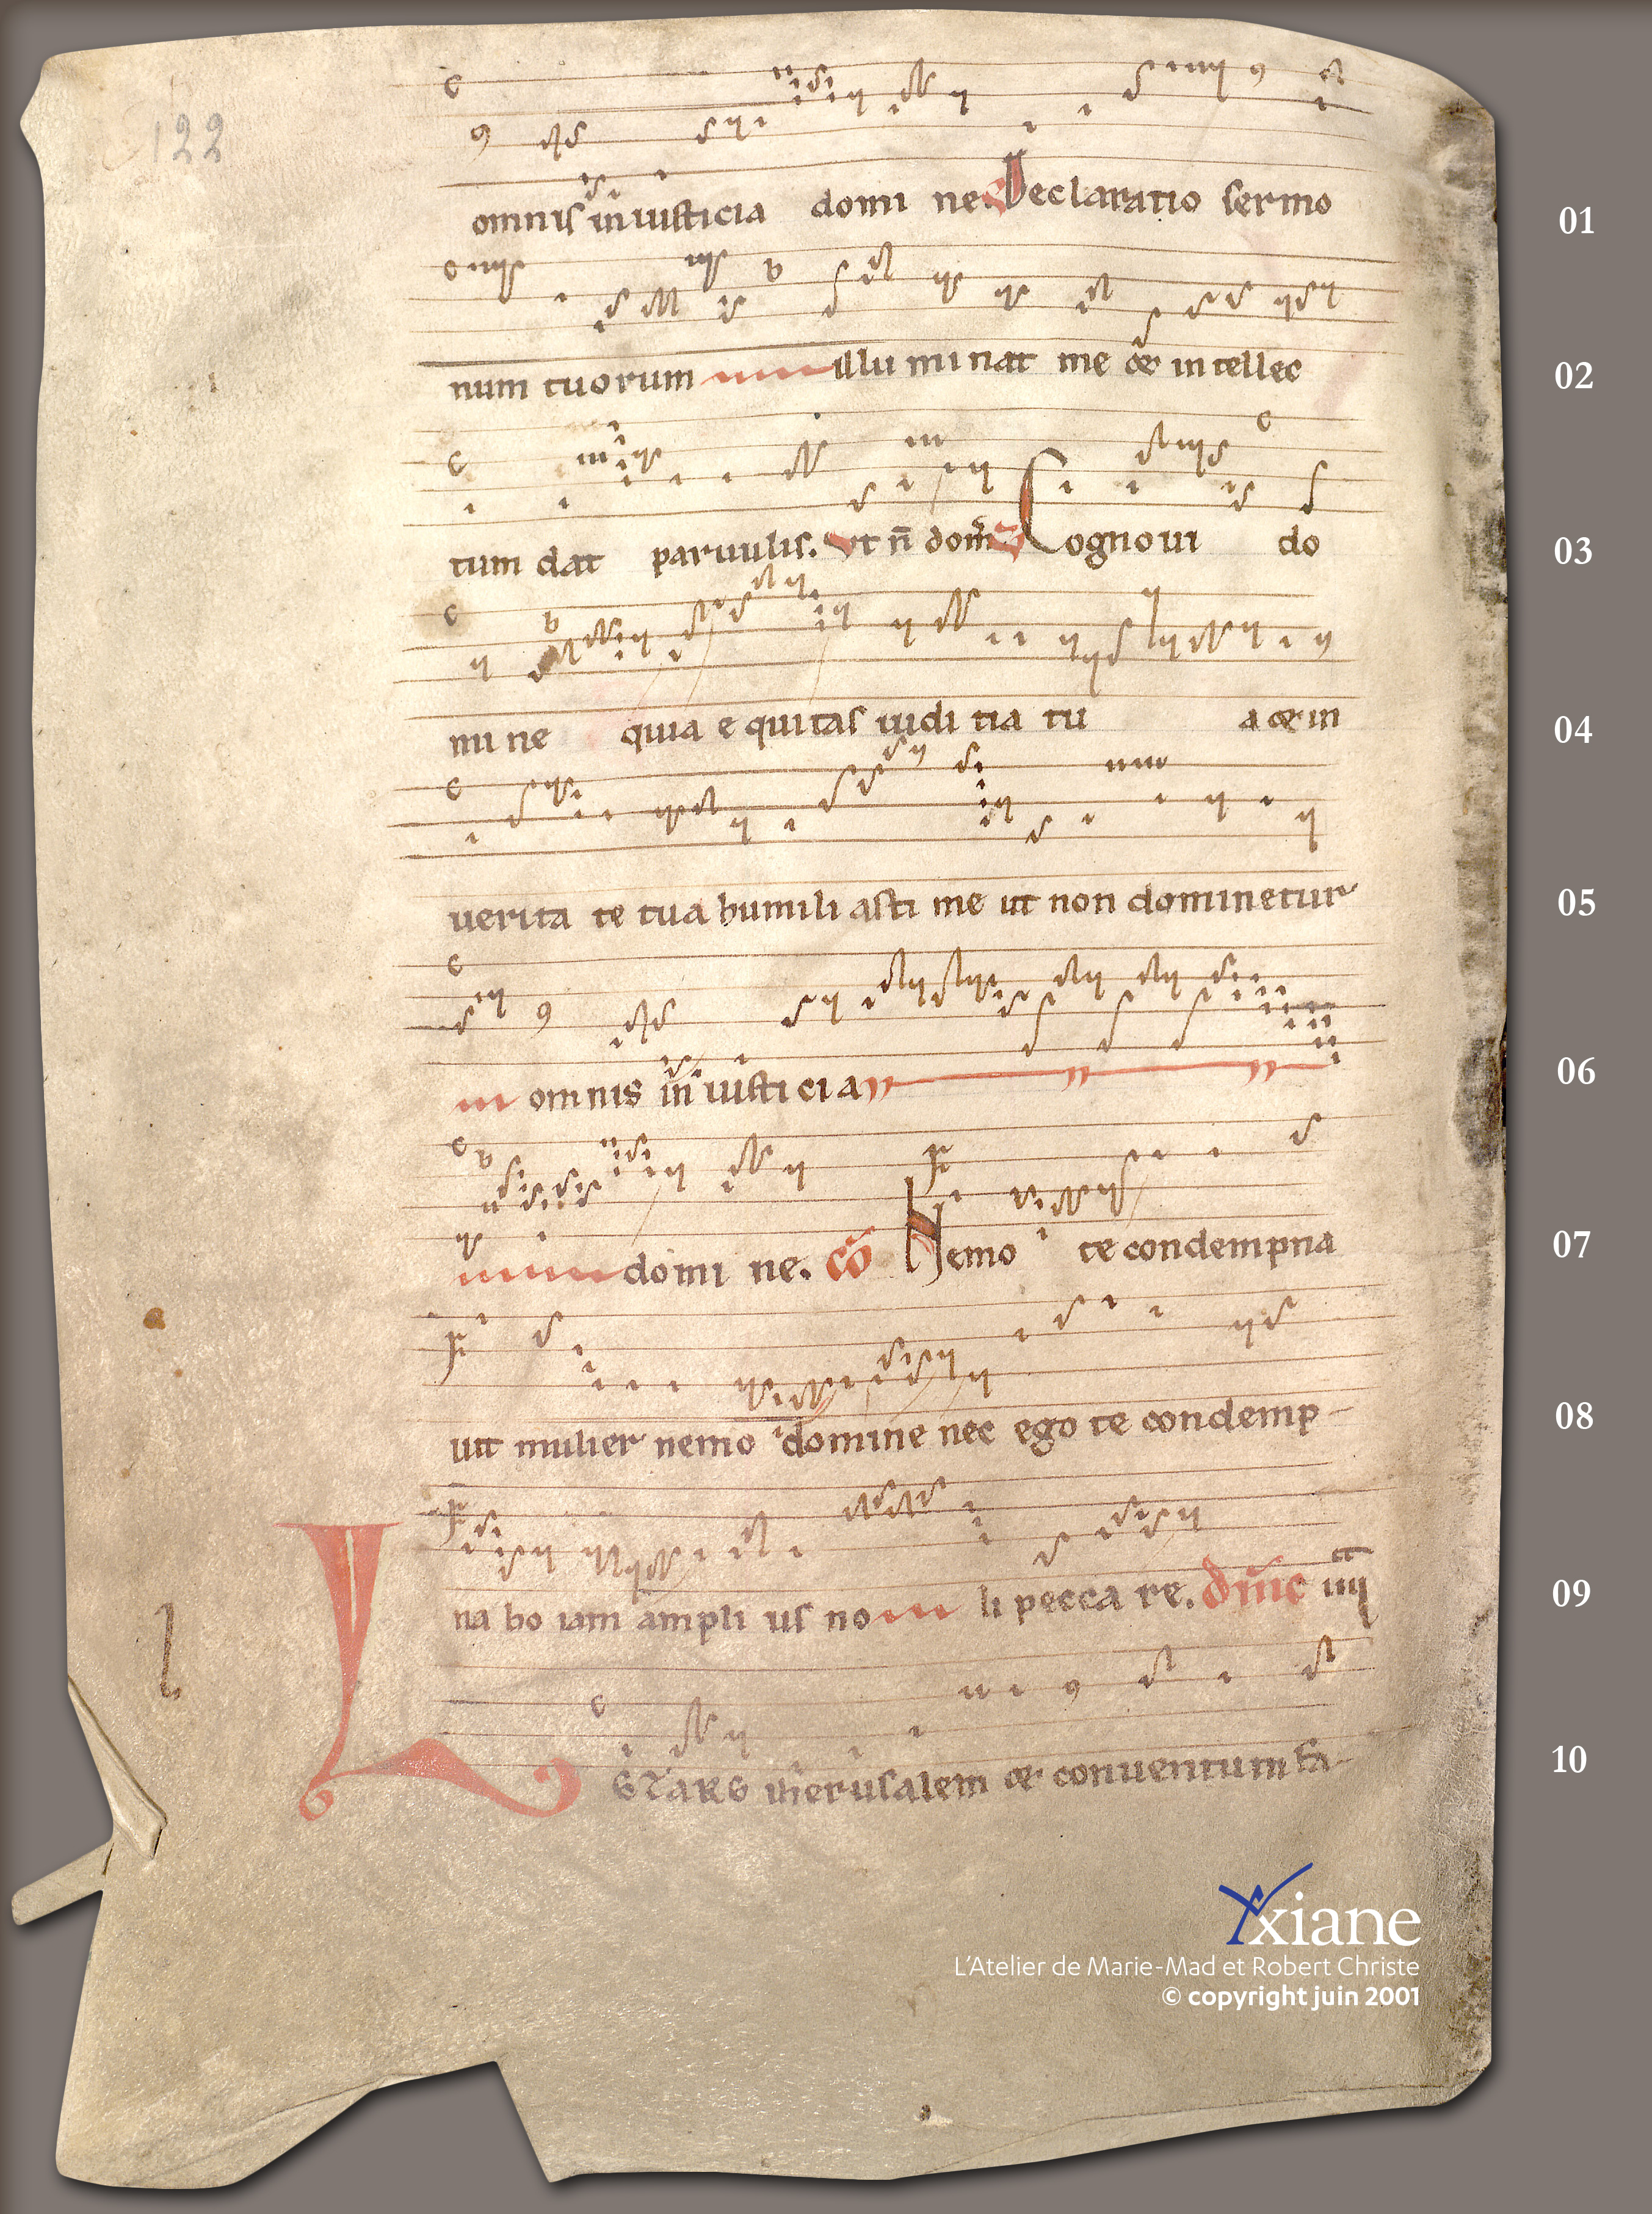 122
omnis in iusticia domi ne. Declaratio sermo 01
num tuorum illu mi nat me & in tellec 02
tum dat paruulis. Vt n̄ dom̄ Cognoui do 03
mi ne quia e quitas iudi tia tu a & in 04
uerita te tua humili asti me ut non dominetur 05
omnis in iusticia 06
domi ne. cō Nemo te condempna 07
uit mulier nemo domine nec ego te condemp- 08
na bo iam ampli us no li pecca re. 09
LETARE iherusalem & conuentum fa- 10
l
Yxiane
L'Atelier de Marie-Mad et Robert Christe
© copyright juin 2001